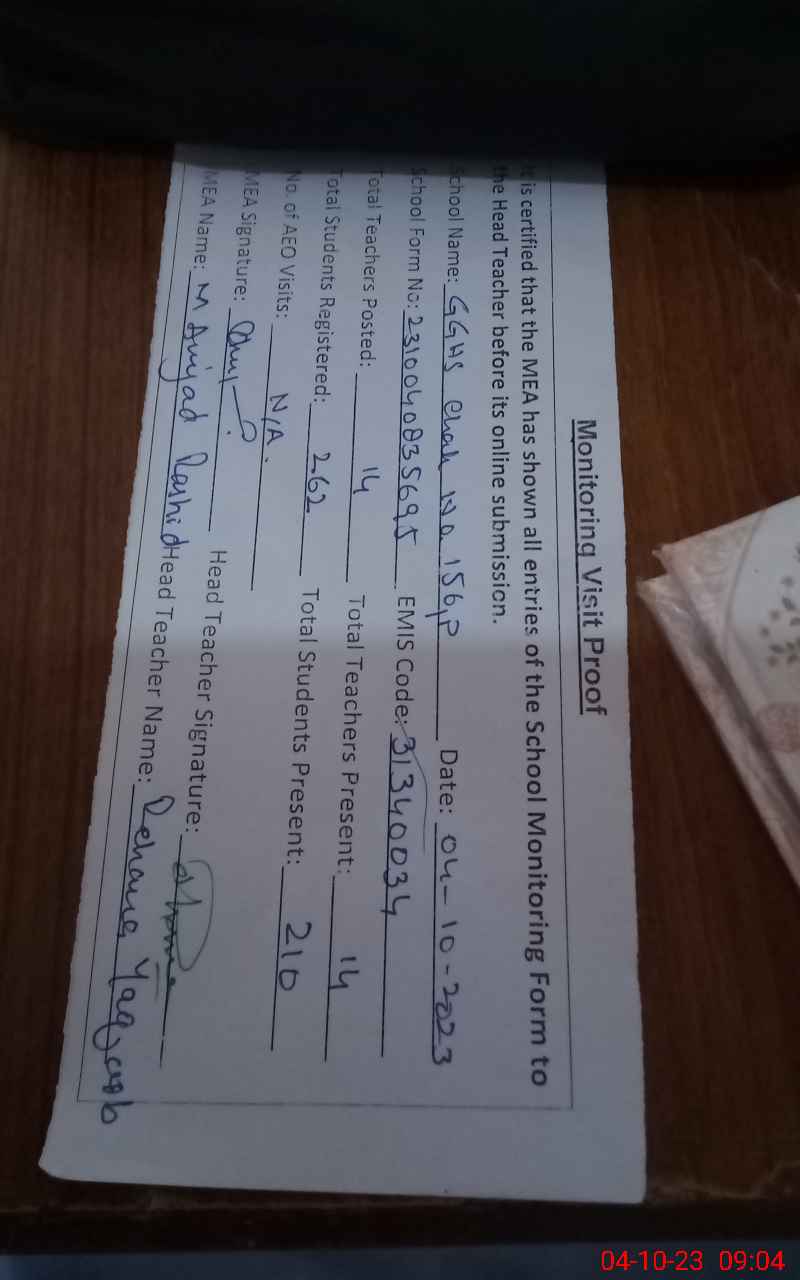 Monitoring Visit Proof
It is certified that the MEA has shown all entries of the School Monitoring Form to
the Head Teacher before its online submission.
School Name: GGHS Chak No. 156,P Date: 04-10-2023
School Form No: 2310040835695 EMIS Code: 31340034
Total Teachers Posted: 14 Total Teachers Present: 14
Total Students Registered: 262 Total Students Present: 210
No. of AEO Visits: N/A.
MEA Signature: Head Teacher Signature:
MEA Name: M Amjad Rashid Head Teacher Name: Rehana Yaqoob
04-10-23 09:04